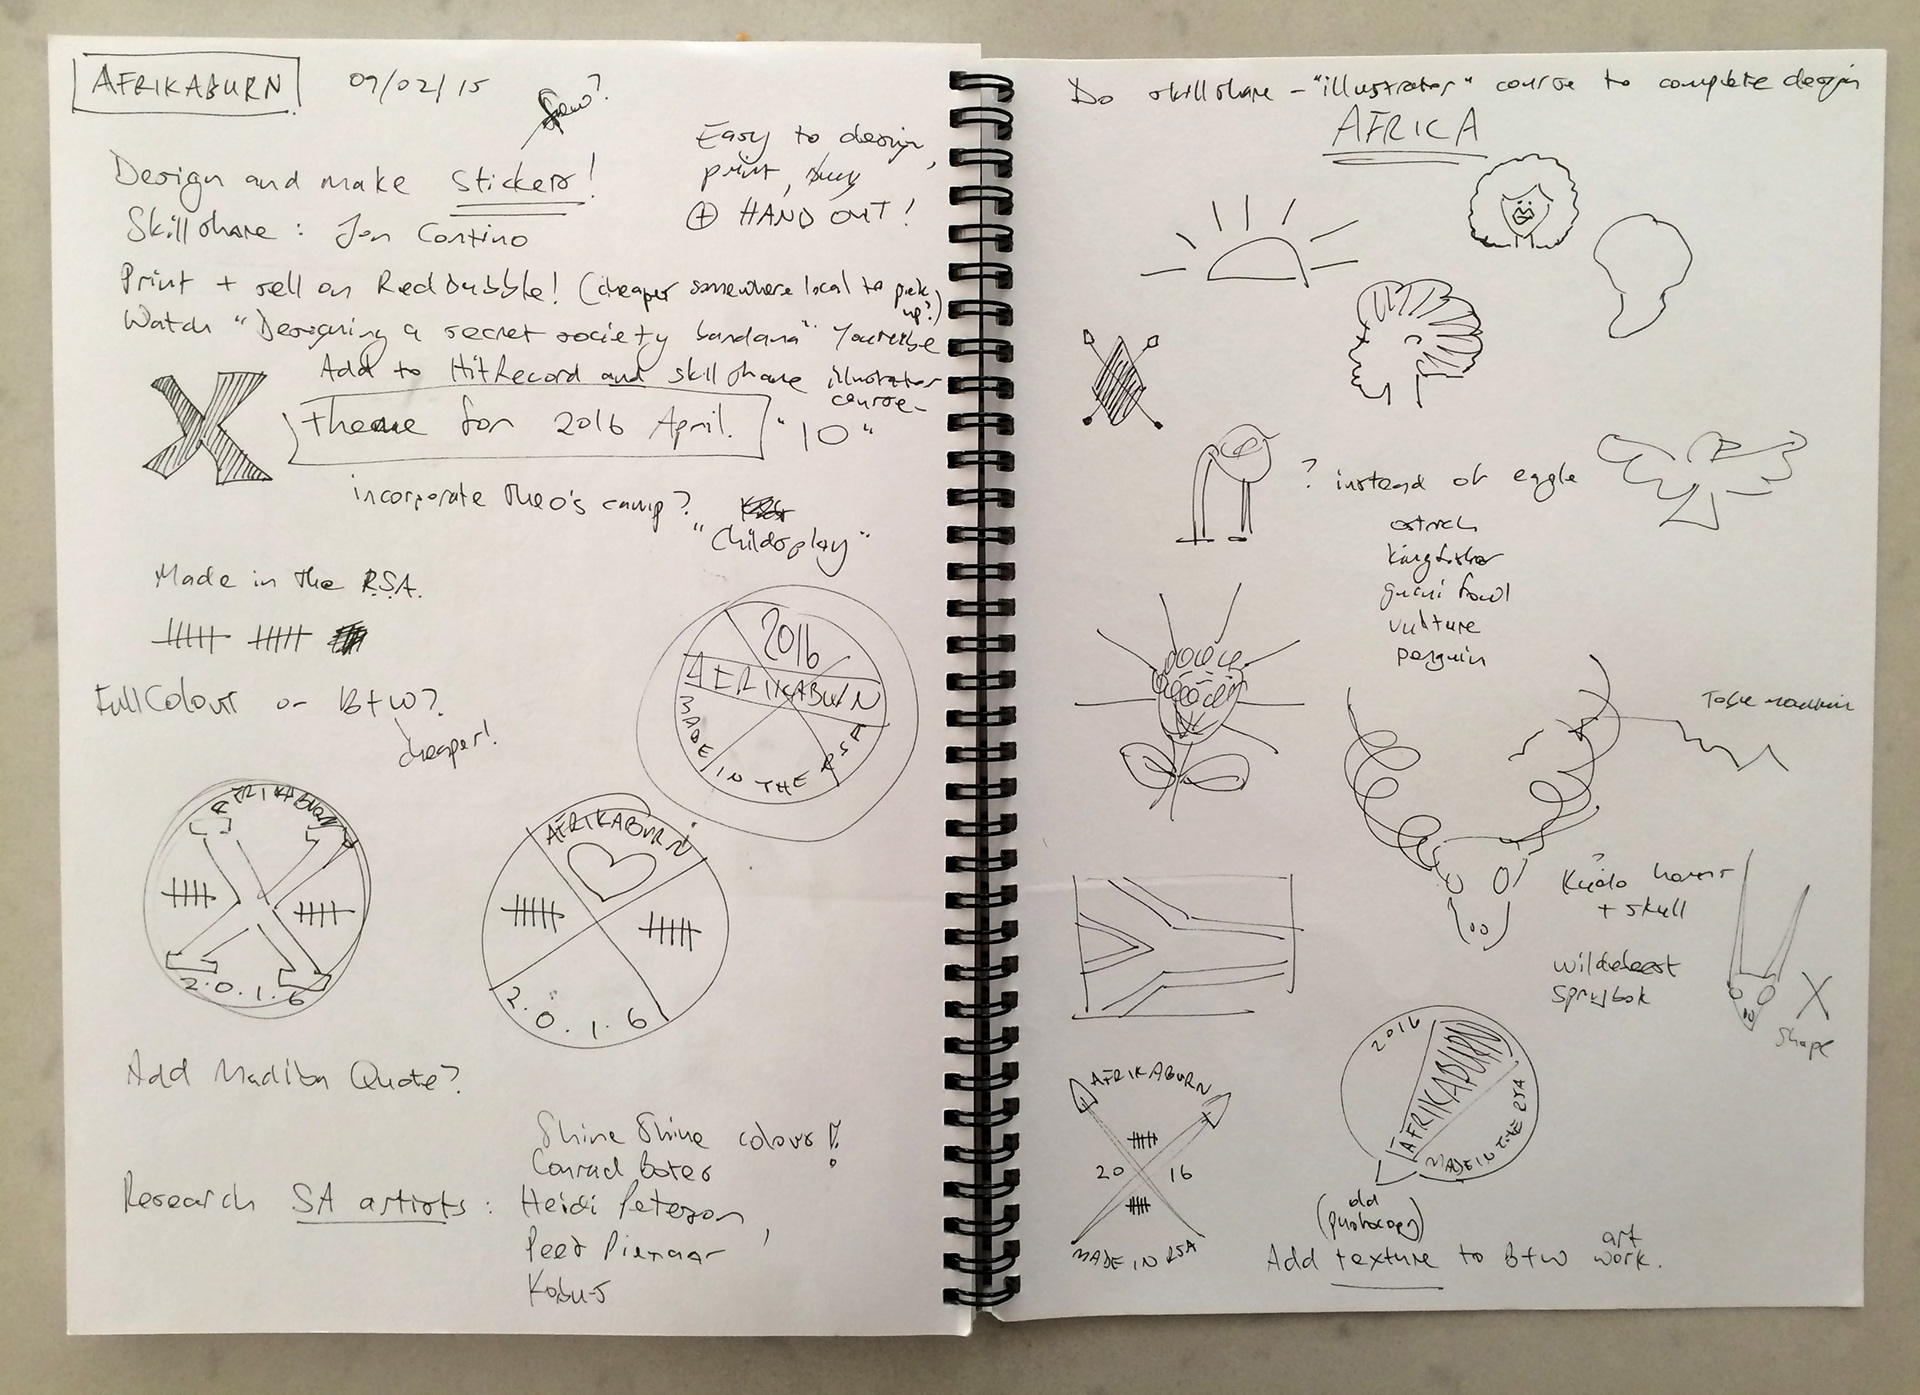 AFRIKABURN 09/02/15
Design and make stickers!
Easy to design,
print, buy
⊕ HAND OUT!
Skillshare: Jon Contino
Print + sell on Redbubble! (cheaper somewhere local to pick
up?)
Watch "Designing a secret society bandana" Youtube
Add to HitRecord and skillshare illustrator
course-
Theme for 2016 April. "10"
X
incorporate Theo's camp?
"Childsplay"
Made in the R.S.A.
Full Colour or B+W?
cheaper!
2016
AFRIKABURN
MADE IN THE RSA
AFRIKABURN
2.0.1.6
AFRIKABURN
2.0.1.6
Add Madiba Quote?
Shine Shine colours!!
Conrad Botes
Research SA artists: Heidi Peterson,
Peet Pienaar
Kobus
Do skillshare - "illustrator" course to complete design
AFRICA
? instead of eagle
ostrich
kingfisher
guini fowl
vulture
penguin
Table mountain
Kudo horns
+ skull
wildebeest
springbok
X
shape
AFRIKABURN
20 16
MADE IN RSA
2016
AFRIKABURN
MADE IN THE RSA
old
(photocopy)
Add texture to B+W art
work.